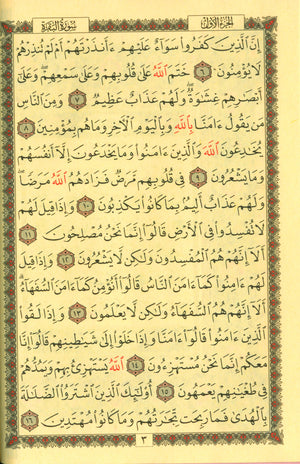 الجزء الأول
سورة البقرة
إِنَّ الَّذِينَ كَفَرُوا سَوَاءٌ عَلَيْهِمْ ءَأَنذَرْتَهُمْ أَمْ لَمْ تُنذِرْهُمْ
لَا يُؤْمِنُونَ ٦ خَتَمَ اللَّهُ عَلَىٰ قُلُوبِهِمْ وَعَلَىٰ سَمْعِهِمْ وَعَلَىٰ
أَبْصَارِهِمْ غِشَاوَةٌ وَلَهُمْ عَذَابٌ عَظِيمٌ ٧ وَمِنَ النَّاسِ
مَن يَقُولُ ءَامَنَّا بِاللَّهِ وَبِالْيَوْمِ الْآخِرِ وَمَا هُم بِمُؤْمِنِينَ ٨
يُخَادِعُونَ اللَّهَ وَالَّذِينَ ءَامَنُوا وَمَا يَخْدَعُونَ إِلَّا أَنفُسَهُمْ
وَمَا يَشْعُرُونَ ٩ فِي قُلُوبِهِم مَّرَضٌ فَزَادَهُمُ اللَّهُ مَرَضًا
وَلَهُمْ عَذَابٌ أَلِيمٌ بِمَا كَانُوا يَكْذِبُونَ ١٠ وَإِذَا قِيلَ لَهُمْ
لَا تُفْسِدُوا فِي الْأَرْضِ قَالُوا إِنَّمَا نَحْنُ مُصْلِحُونَ ١١
أَلَا إِنَّهُمْ هُمُ الْمُفْسِدُونَ وَلَٰكِن لَّا يَشْعُرُونَ ١٢ وَإِذَا قِيلَ
لَهُمْ ءَامِنُوا كَمَا ءَامَنَ النَّاسُ قَالُوا أَنُؤْمِنُ كَمَا ءَامَنَ السُّفَهَاءُ
أَلَا إِنَّهُمْ هُمُ السُّفَهَاءُ وَلَٰكِن لَّا يَعْلَمُونَ ١٣ وَإِذَا لَقُوا
الَّذِينَ ءَامَنُوا قَالُوا ءَامَنَّا وَإِذَا خَلَوْا إِلَىٰ شَيَاطِينِهِمْ قَالُوا إِنَّا
مَعَكُمْ إِنَّمَا نَحْنُ مُسْتَهْزِءُونَ ١٤ اللَّهُ يَسْتَهْزِئُ بِهِمْ وَيَمُدُّهُمْ
فِي طُغْيَانِهِمْ يَعْمَهُونَ ١٥ أُولَٰئِكَ الَّذِينَ اشْتَرَوُا الضَّلَالَةَ
بِالْهُدَىٰ فَمَا رَبِحَت تِّجَارَتُهُمْ وَمَا كَانُوا مُهْتَدِينَ ١٦
٣